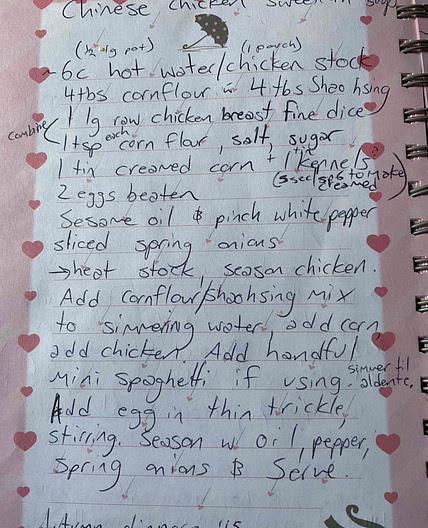 Chinese chicken sweetcorn soup
(½ lg pot) (1 pouch)
~6c hot water/chicken stock
4tbs cornflour w 4tbs Shao hsing
combine
1 lg raw chicken breast fine dice
1tsp each corn flour, salt, sugar
1 tin creamed corn + 1 tin kernels
(5 sec/sp6 to make creamed)
2 eggs beaten
Sesame oil & pinch white pepper
sliced spring onions
→heat stock, season chicken.
Add cornflour/shaohsing mix
to simmering water, add corn,
add chicken. Add handful
mini spaghetti if using. simmer til aldente.
Add egg in thin trickle,
stirring. Season w oil, pepper,
Spring onions & Serve.